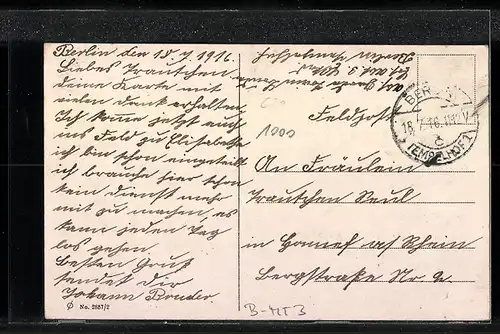 Berlin den 18 7 1916.
Liebes Trautchen
deine Karte mit
vielen dank erhalten
Ich komme jetzt auch
ins Feld zu Elisabetha
ich bin schon eingeteilt
ich brauche hier schon
kein dienst mehr
mit zu machen, es
kann jeden Tag
los gehen.
Besten Gruß
sendet dir
Johann
Berlin
Feldpost
1000
BERLIN
18.7.16. 11-12V
c
TEMPELHOF 1
An Fräulein
Trautchen
in Honnef a/ Rhein
Bergstraße Nr
No. 2887/2
B-MT 3